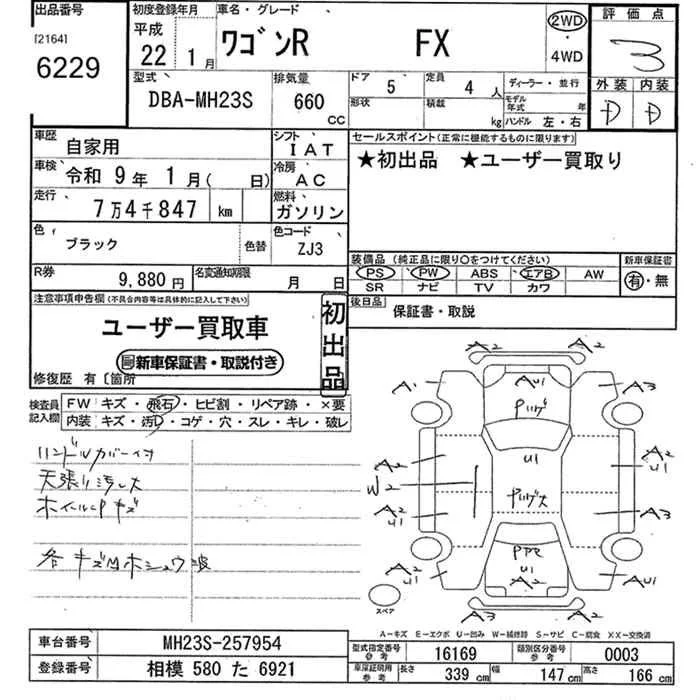 出品番号
[2164]
6229
初度登録年月
平成
22年 1月
車名・グレード
ワゴンR FX
2WD
・
4WD
評価点
3
外装 内装
D D
型式
DBA-MH23S
排気量
660
CC
ドア
5
定員
4人
形状
積載
kg
ディーラー・並行
モデル年式 年
ハンドル 左・右
車歴
自家用
シフト
IAT
車検
令和 9年 1月( 日)
冷房
AC
走行
7万4千847 km
燃料
ガソリン
色
ブラック
色替
色コード
ZJ3
R券
9,880円
名変通知期限
月 日
セールスポイント(正常に機能するものに限ります)
★初出品 ★ユーザー買取り
装備品(純正品に限り○をつけてください)
PS PW ABS エアB AW
SR ナビ TV カワ
新車保証書
有・無
後日品
保証書・取説
注意事項申告欄(不具合内容等は具体的に記入して下さい)
ユーザー買取車
新車保証書・取説付き
初出品
修復歴 有〔箇所
検査員記入欄
FW キズ・飛石・ヒビ割・リペア跡・×要
内装 キズ・汚れ・コゲ・穴・スレ・キレ・破レ
ハンドルカバー付
天張り汚レ大
ホイールCPキズ
各キズ凹ホシュウ波
A2 A2
A1 AU1 A3
U1
A2 A2
U1
W2
A2
U1
A3
PPセ
U1
A2
U1
A2
AU1
A2 A2
スペア
A-キズ E-エクボ U-凹み W-補修跡 S-サビ C-腐食 XX-交換済
車台番号
MH23S-257954
登録番号
相模 580 た 6921
型式指定番号
参考
16169
類別区分番号
参考
0003
車庫証明用
参考
長さ 339 cm
幅 147 cm
高さ 166 cm